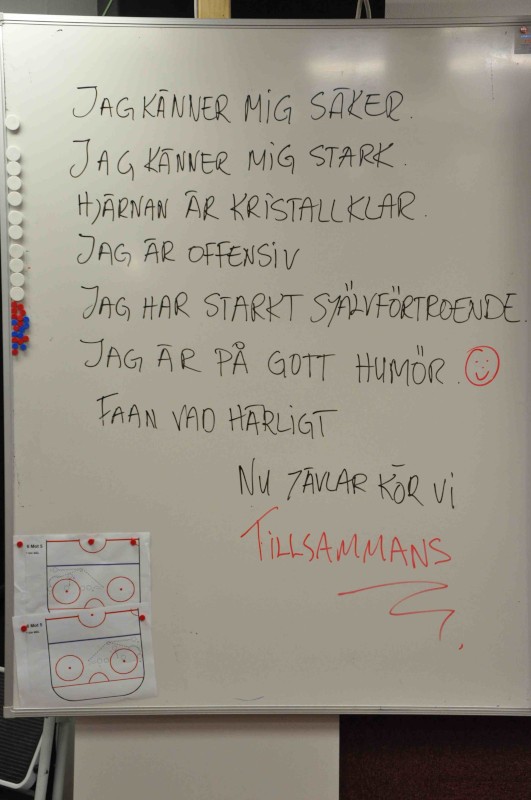 JAG KÄNNER MIG SÄKER.
JAG KÄNNER MIG STARK.
HJÄRNAN ÄR KRISTALLKLAR.
JAG ÄR OFFENSIV
JAG HAR STARKT SJÄLVFÖRTROENDE.
JAG ÄR PÅ GOTT HUMÖR.
FAAN VAD HÄRLIGT
NU TÄVLAR KÖR VI
TILLSAMMANS